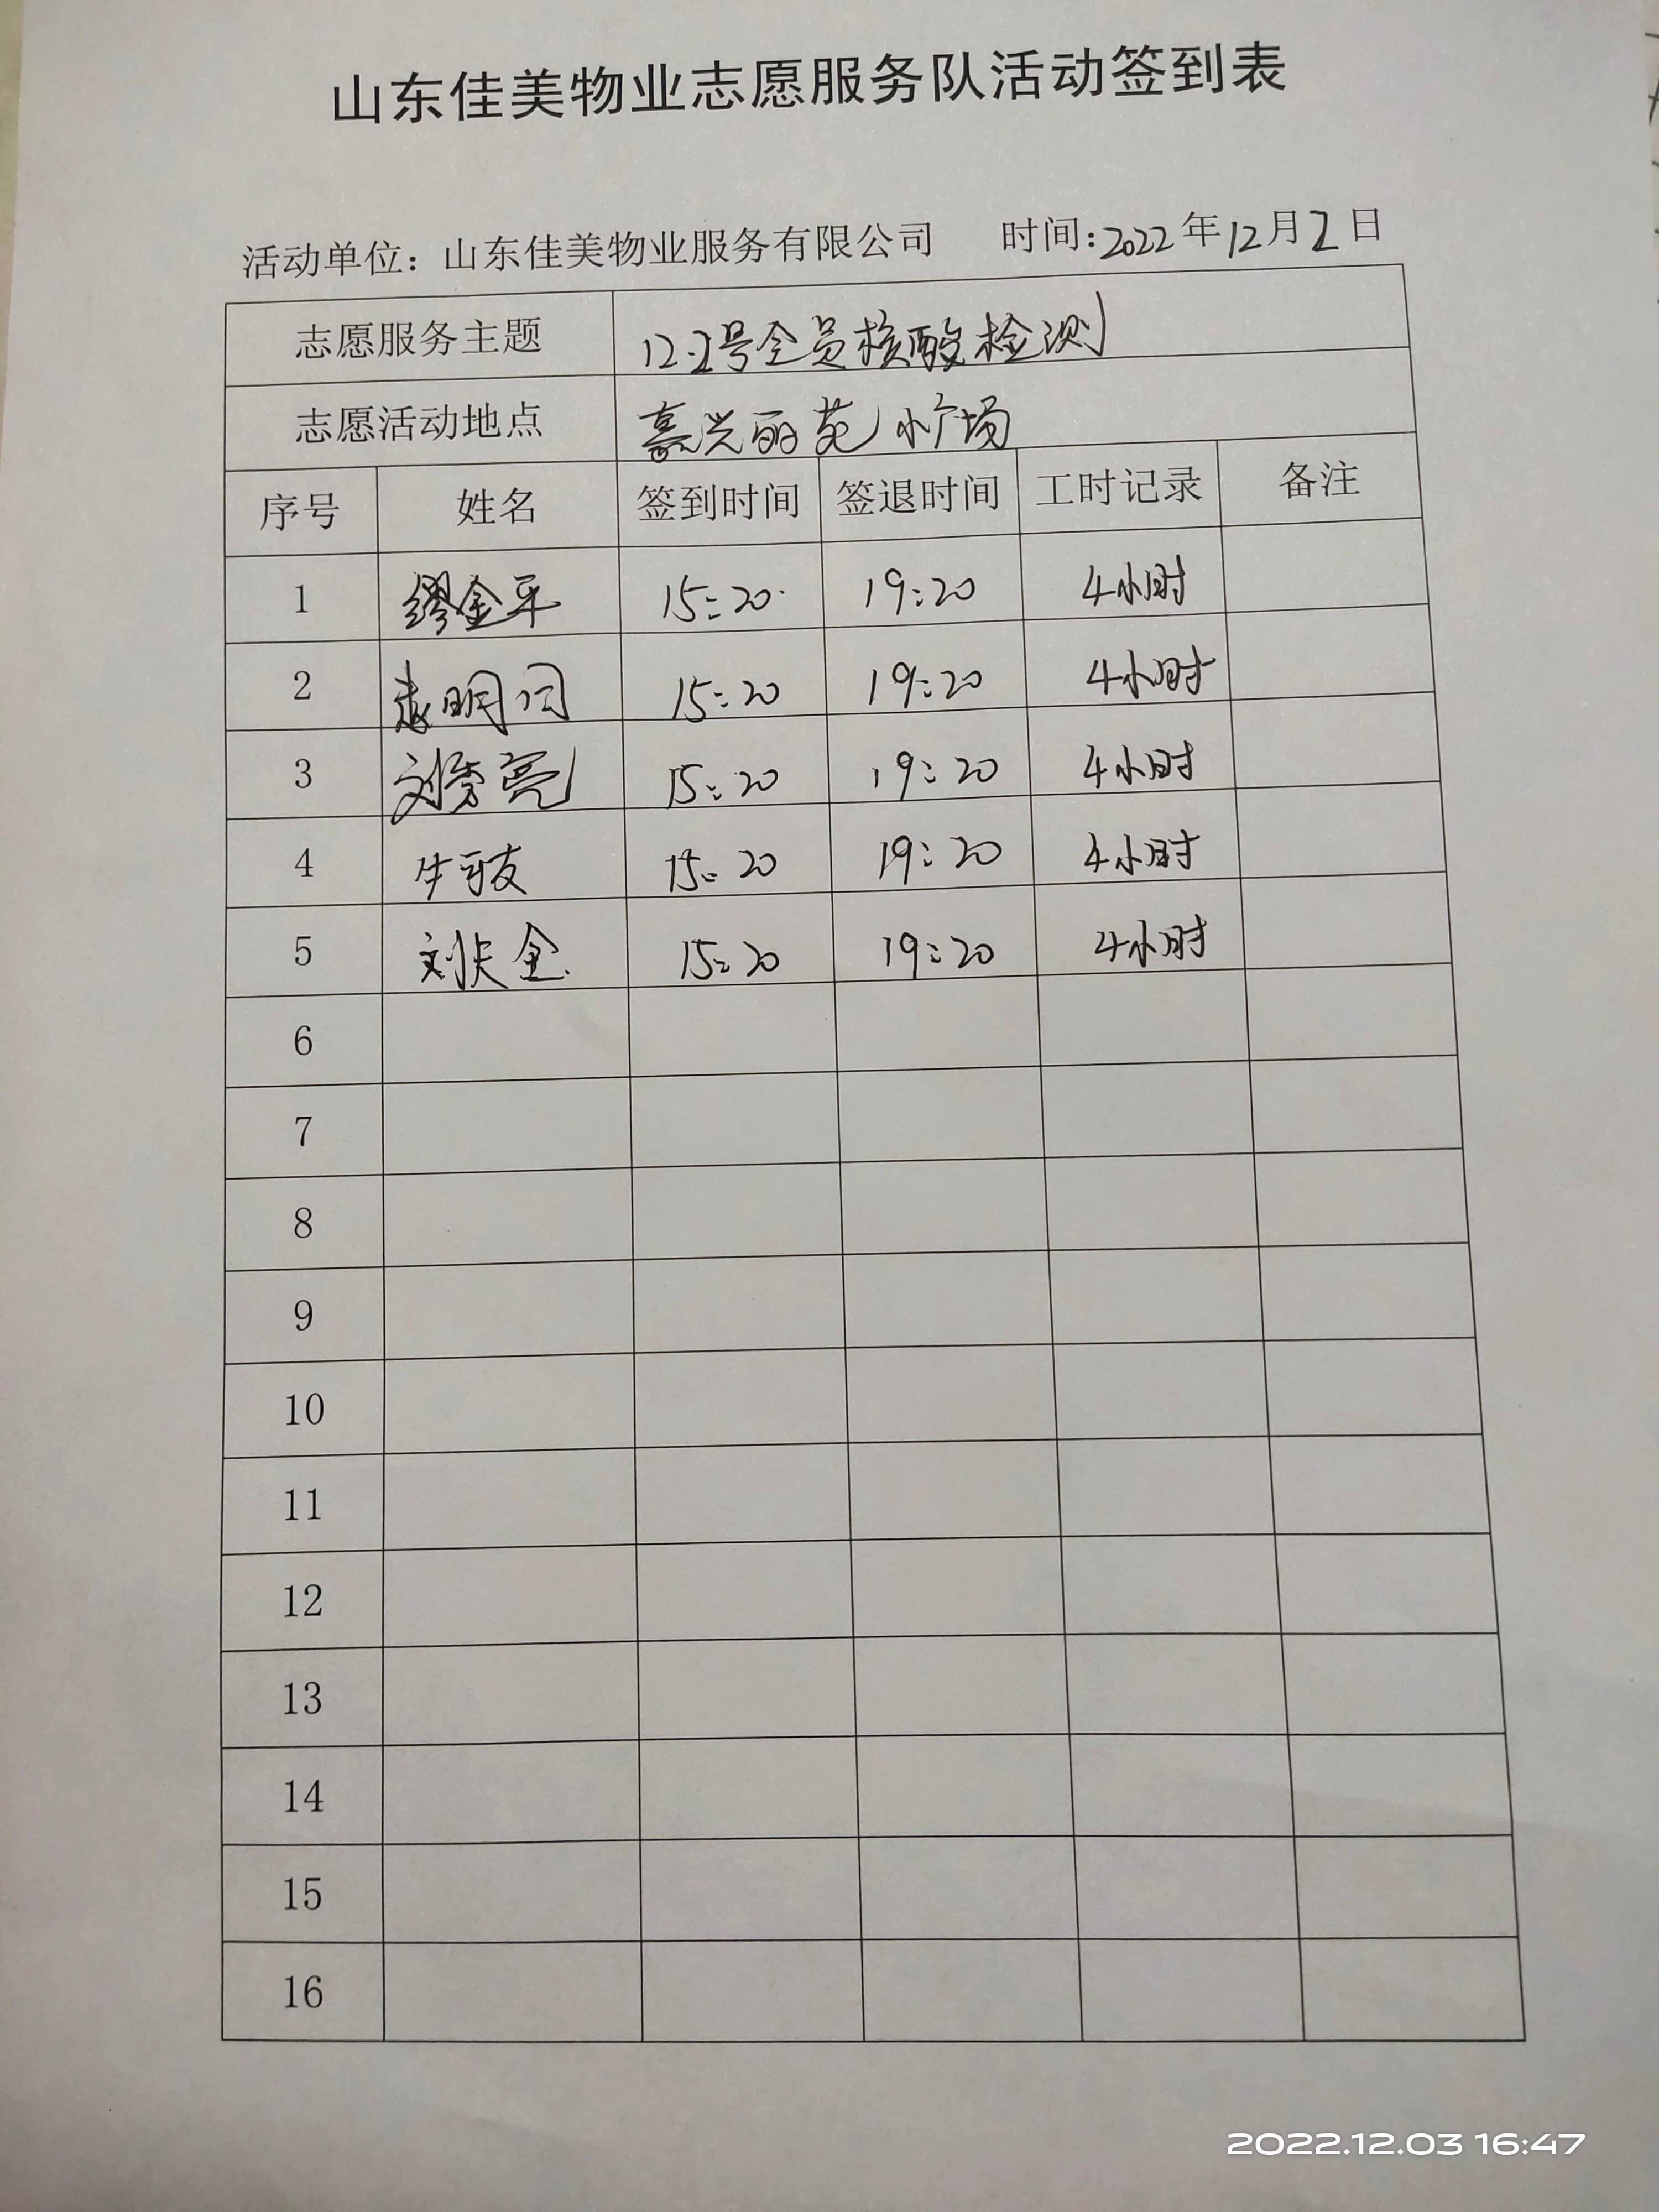 山东佳美物业志愿服务队活动签到表
活动单位：山东佳美物业服务有限公司 时间:2022年12月2日
志愿服务主题 12.2号全员核酸检测
志愿活动地点 嘉兴丽苑小广场
序号 姓名 签到时间 签退时间 工时记录 备注
1 缪金平 15:20 19:20 4小时
2 15:20 19:20 4小时
3 刘秀亮 15:20 19:20 4小时
4 15:20 19:20 4小时
5 15:20 19:20 4小时
6
7
8
9
10
11
12
13
14
15
16
2022.12.03 16:47